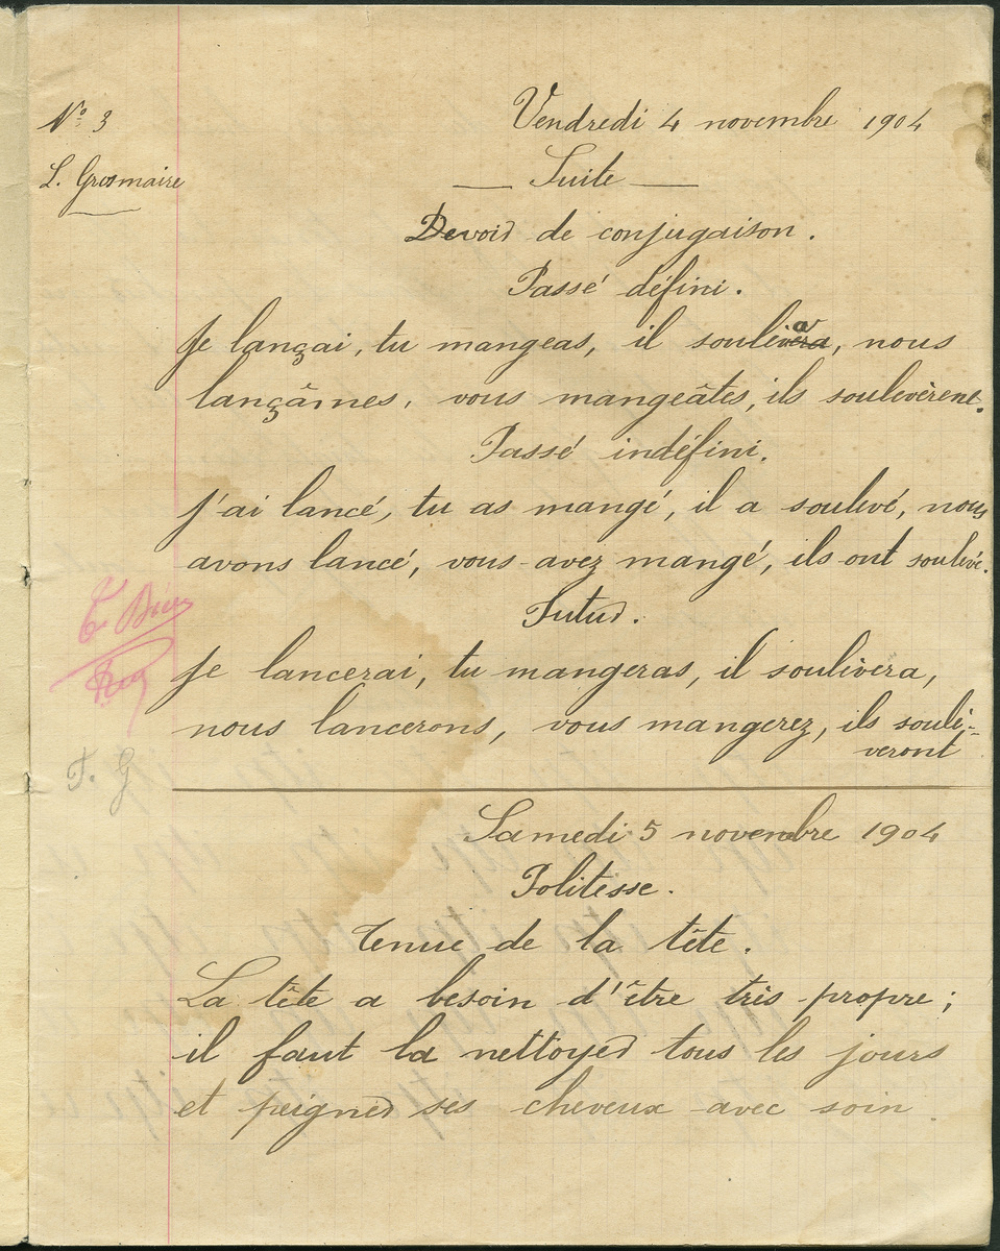 N° 3
Vendredi 4 novembre 1904
L. Grosmaire
— Suite —
Devoir de conjugaison.
Passé défini.
Je lançai, tu mangeas, il souleva, nous
lançâmes, vous mangeâtes, ils soulevèrent.
Passé indéfini.
J'ai lancé, tu as mangé, il a soulevé, nous
avons lancé, vous avez mangé, ils ont soulevé.
Futur.
Je lancerai, tu mangeras, il soulèvera,
nous lancerons, vous mangerez, ils soulè-
veront
T. Bien
T. G
Samedi 5 novembre 1904
Politesse.
Tenue de la tête.
La tête a besoin d'être très propre ;
il faut la nettoyer tous les jours
et peigner ses cheveux avec soin.